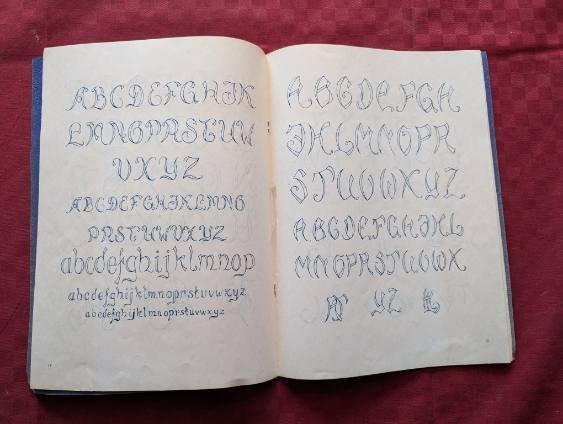 ABCDEFGHJK
LMNOPRSTUW
VXYZ
ABCDEFGHJKLMNO
PRSTUWVXYZ
abcdefghijklmnop
abcdefghijklmnoprstuvwxyz
abcdefghijklmnoprstuvwxyz
ABCDEFGH
JKLMNOPR
STUVWXYZ
ABCDEFGHJKL
MNOPRSTUWX
YZ